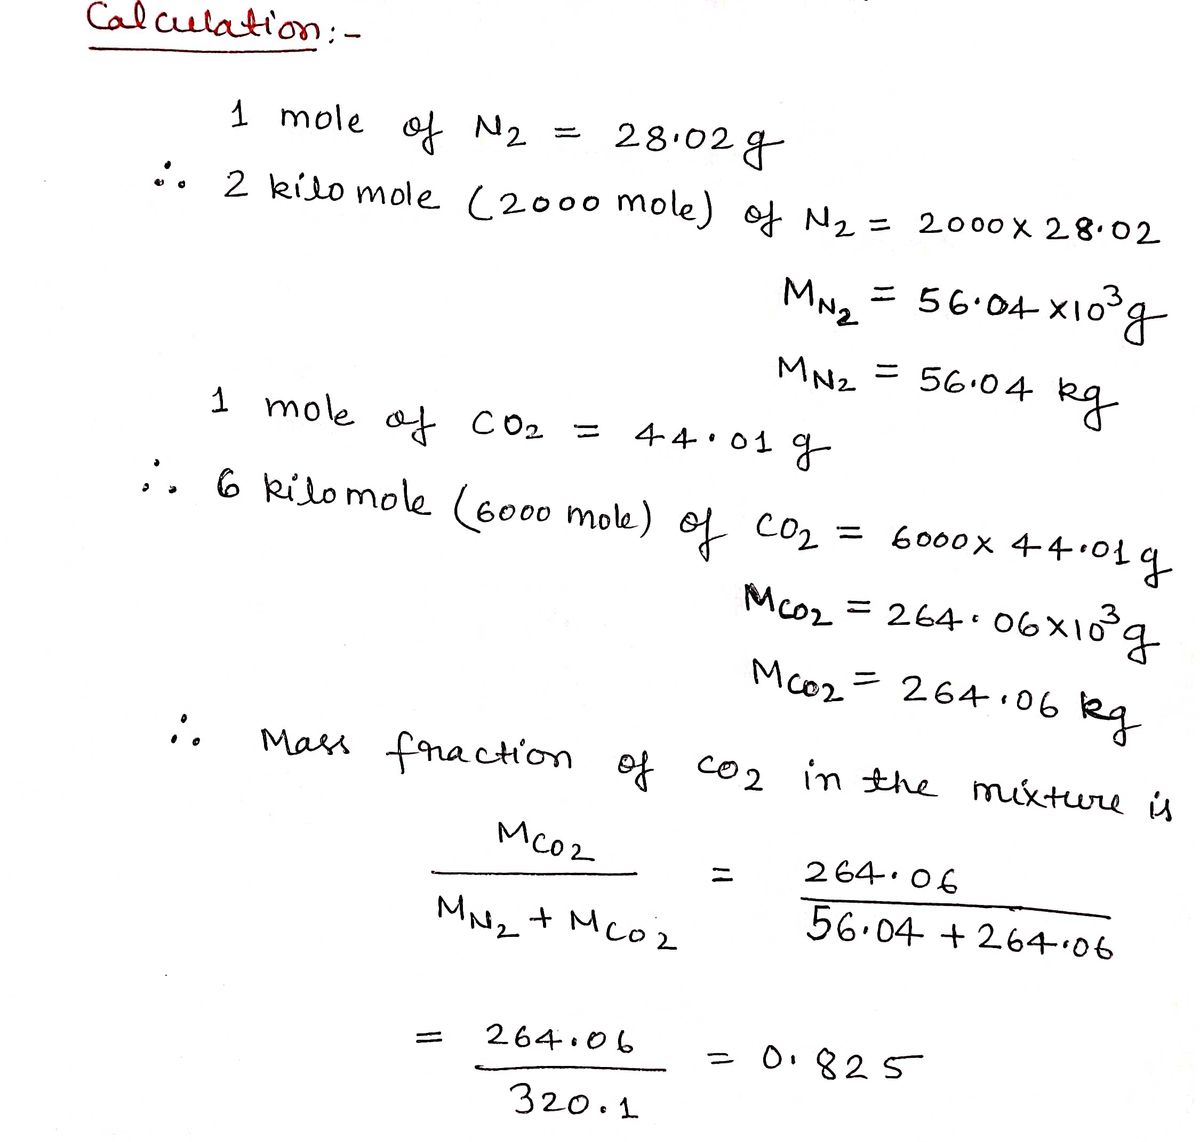 Calculation:-
1 mole of N₂ = 28.02 g
∴ 2 kilo mole (2000 mole) of N₂ = 2000 x 28.02
M_N₂ = 56.04 x10³ g
M_N₂ = 56.04 kg
1 mole of CO₂ = 44.01 g
∴ 6 kilo mole (6000 mole) of CO₂ = 6000 x 44.01 g
M_CO₂ = 264.06 x10³ g
M_CO₂ = 264.06 kg
∴ Mass fraction of CO₂ in the mixture is
M_CO₂ / (M_N₂ + M_CO₂) = 264.06 / (56.04 + 264.06)
= 264.06 / 320.1 = 0.825